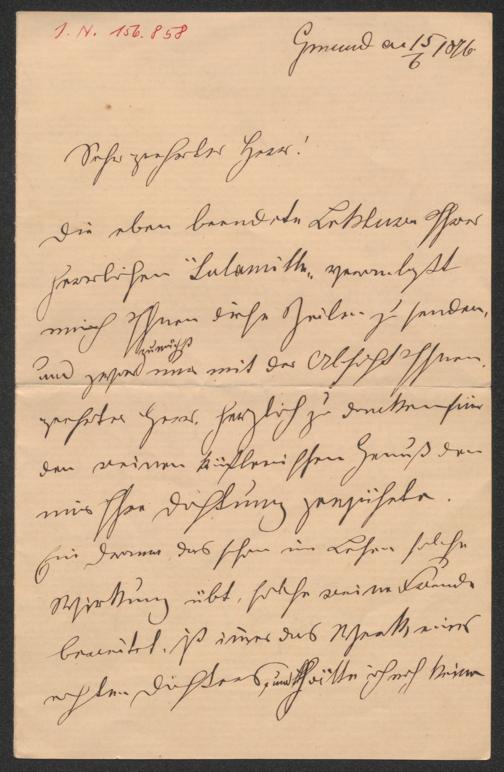 I. N. 156.858
Gmund am 15/6 1876
Sehr geehrter Herr!
Die eben beendete Lektüre Ihrer
herrlichen "Sulamith" veranlaßt
mich Ihnen diese Zeilen zu senden,
und zwar zunächst nur mit der Absicht Ihnen,
geehrter Herr, herzlich zu danken für
den reinen künstlerischen Genuß den
mir Ihre Dichtung gewährte.
Ein Drama das schon im Lesen solche
Wirkung übt, solche reine Freude
bereitet, ist immer das Werk eines
echten Dichters, und hätte ich noch keine